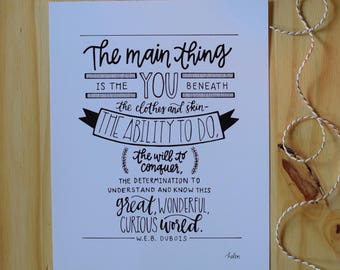 The main thing
IS THE YOU BENEATH
the clothes and skin-
THE ABILITY TO DO,
the will to
conquer,
THE DETERMINATION TO
UNDERSTAND AND KNOW THIS
great, WONDERFUL,
CURIOUS world.
W.E.B. DUBOIS